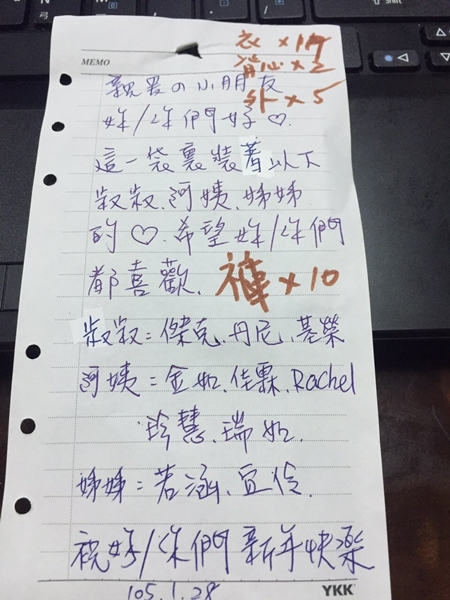 衣 x 17
背心 x 2
外 x 5
MEMO
親愛の小朋友
妳/你們好♡
這一袋裏裝著以下
叔叔、阿姨、姊姊
的♡.希望妳/你們
都喜歡.
褲 x 10
叔叔:傑克、丹尼、基榮
阿姨:金如、佳霖、Rachel
玲慧、瑞如.
姊姊:若涵、宜伶.
祝妳/你們新年快樂
105.1.28
YKK